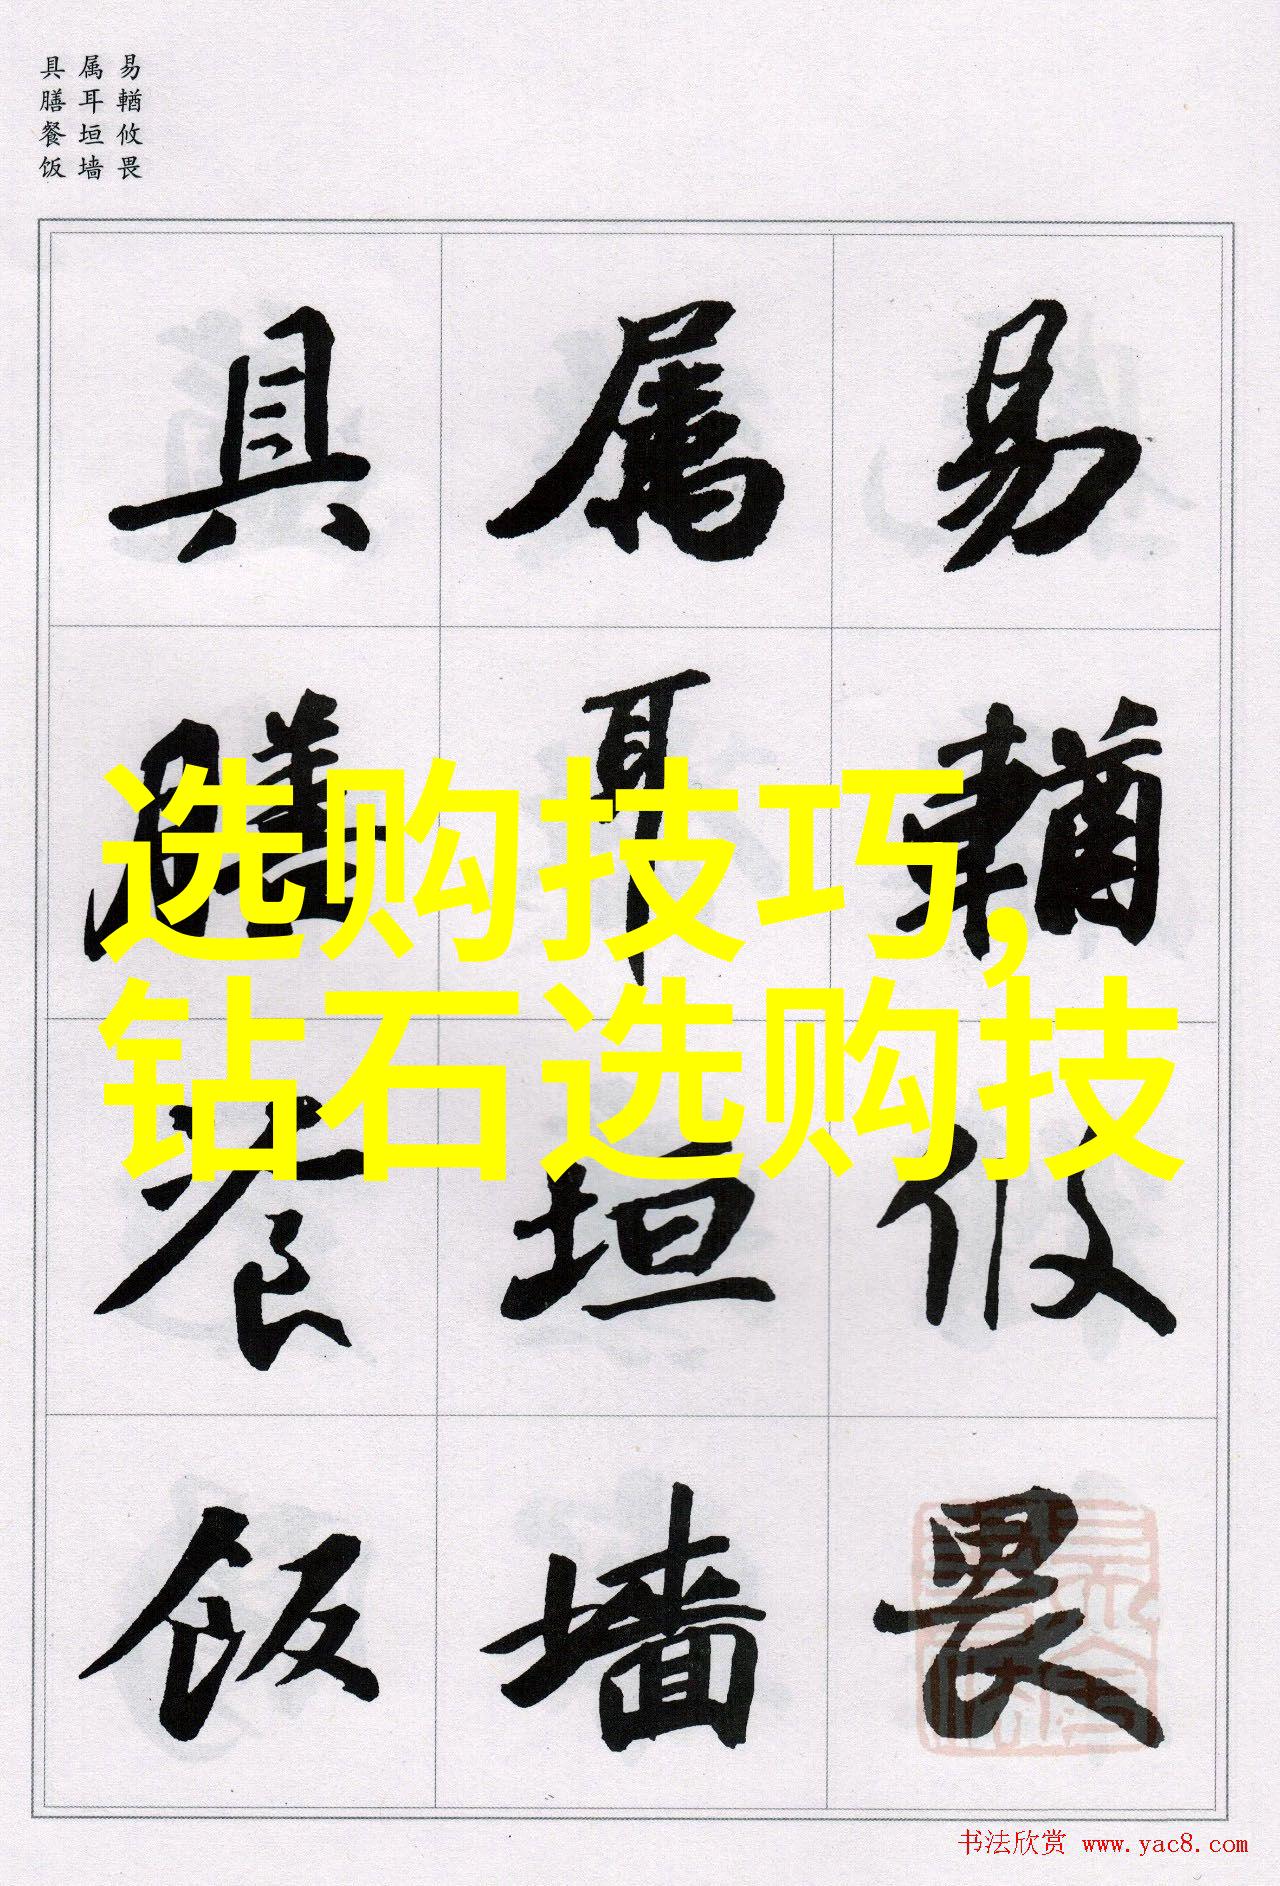 易輶攸畏
属耳垣墙
具膳餐饭
易輶攸畏
属耳垣墙
具膳餐饭
选购技巧,
钻石选购技
书法欣赏 www.yac8.com